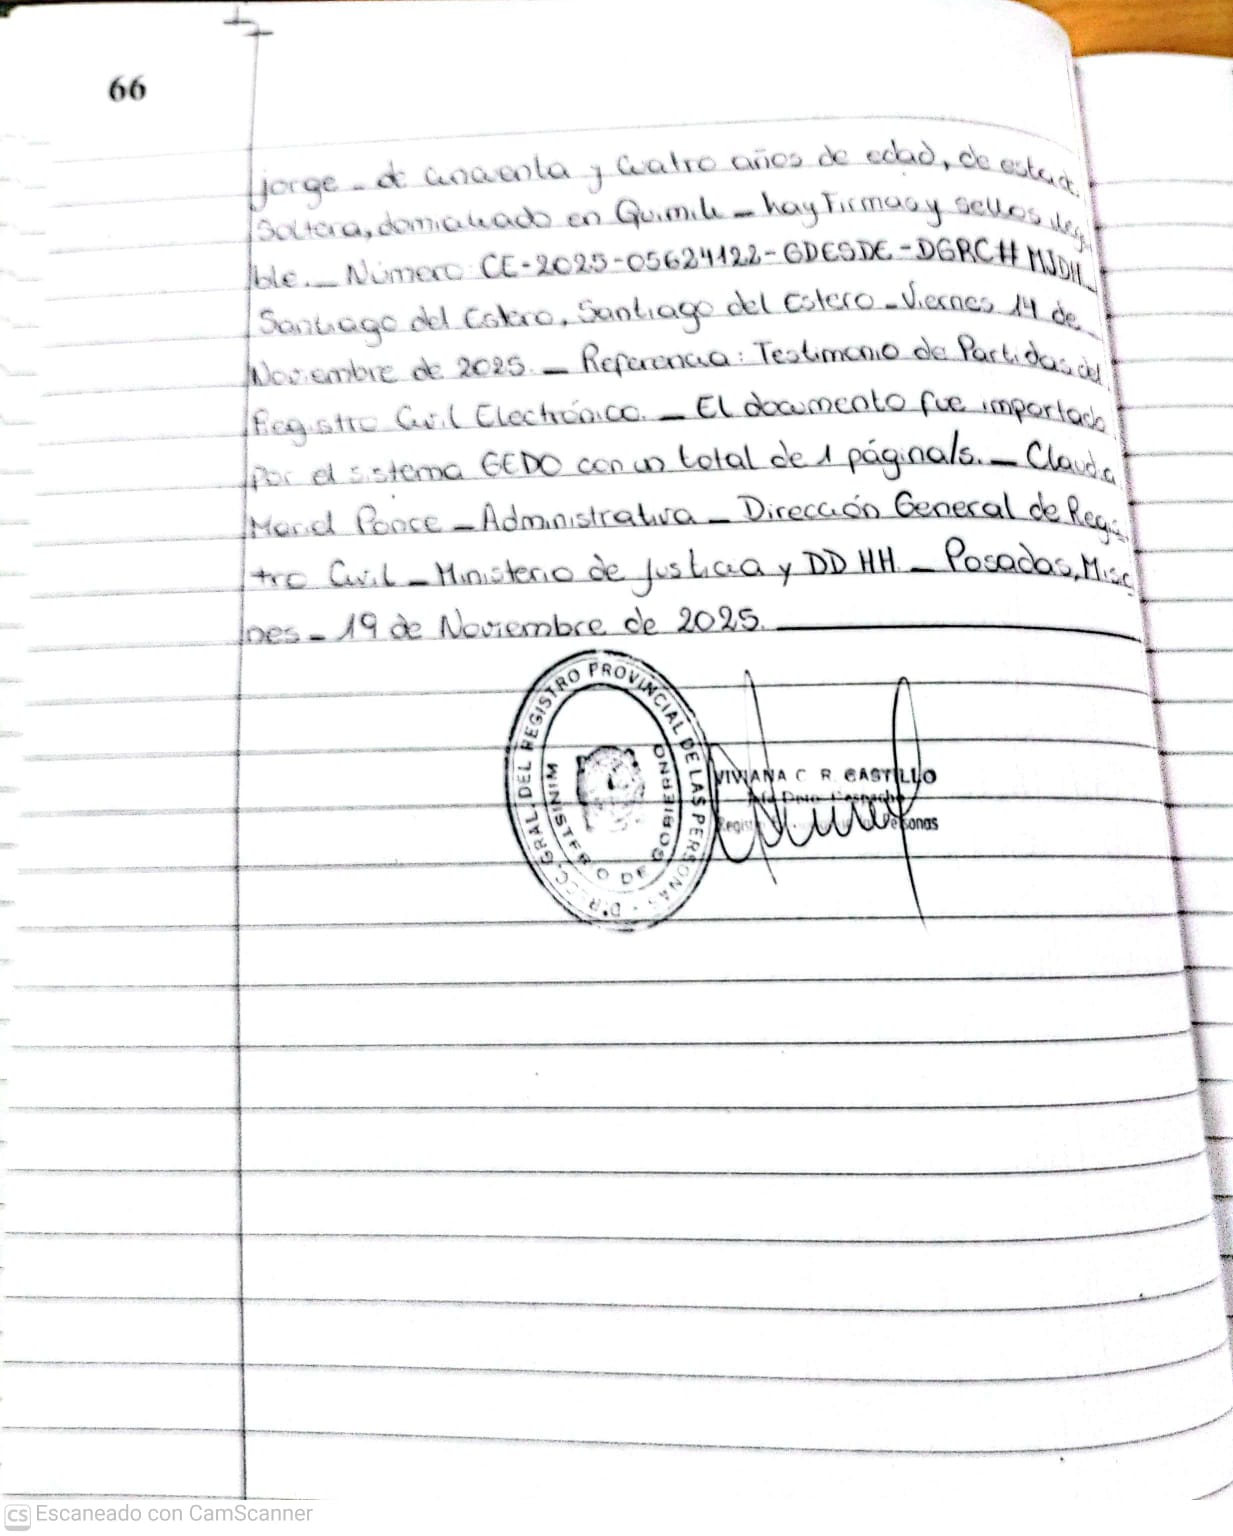 66
jorge - de cincuenta y cuatro años de edad, de estad
Soltera, domiciliado en Quimili - hay Firmas y sellos ileg
ble. - Número: CE-2025-05624122-GDESDE-DGRC#MJDH
Santiago del Estero, Santiago del Estero - Viernes 14 de
Noviembre de 2025. - Referencia: Testimonio de Partidas del
Registro Civil Electrónico. - El documento fue importado
por el sistema GEDO con un total de 1 página/s. - Claudia
Mariel Ponce - Administrativa - Dirección General de Regis
tro Civil - Ministerio de Justicia y DD HH - Posadas, Misio
nes - 19 de Noviembre de 2025.
DIRECC. GRAL. DEL REGISTRO PROVINCIAL DE LAS PERSONAS
MINISTERIO DE GOBIERNO
VIVIANA C. R. CASTILLO
Personas
CS Escaneado con CamScanner